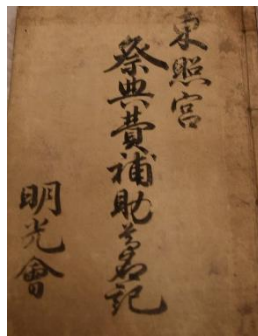 東照宮
祭典費補助芳名記
明光會